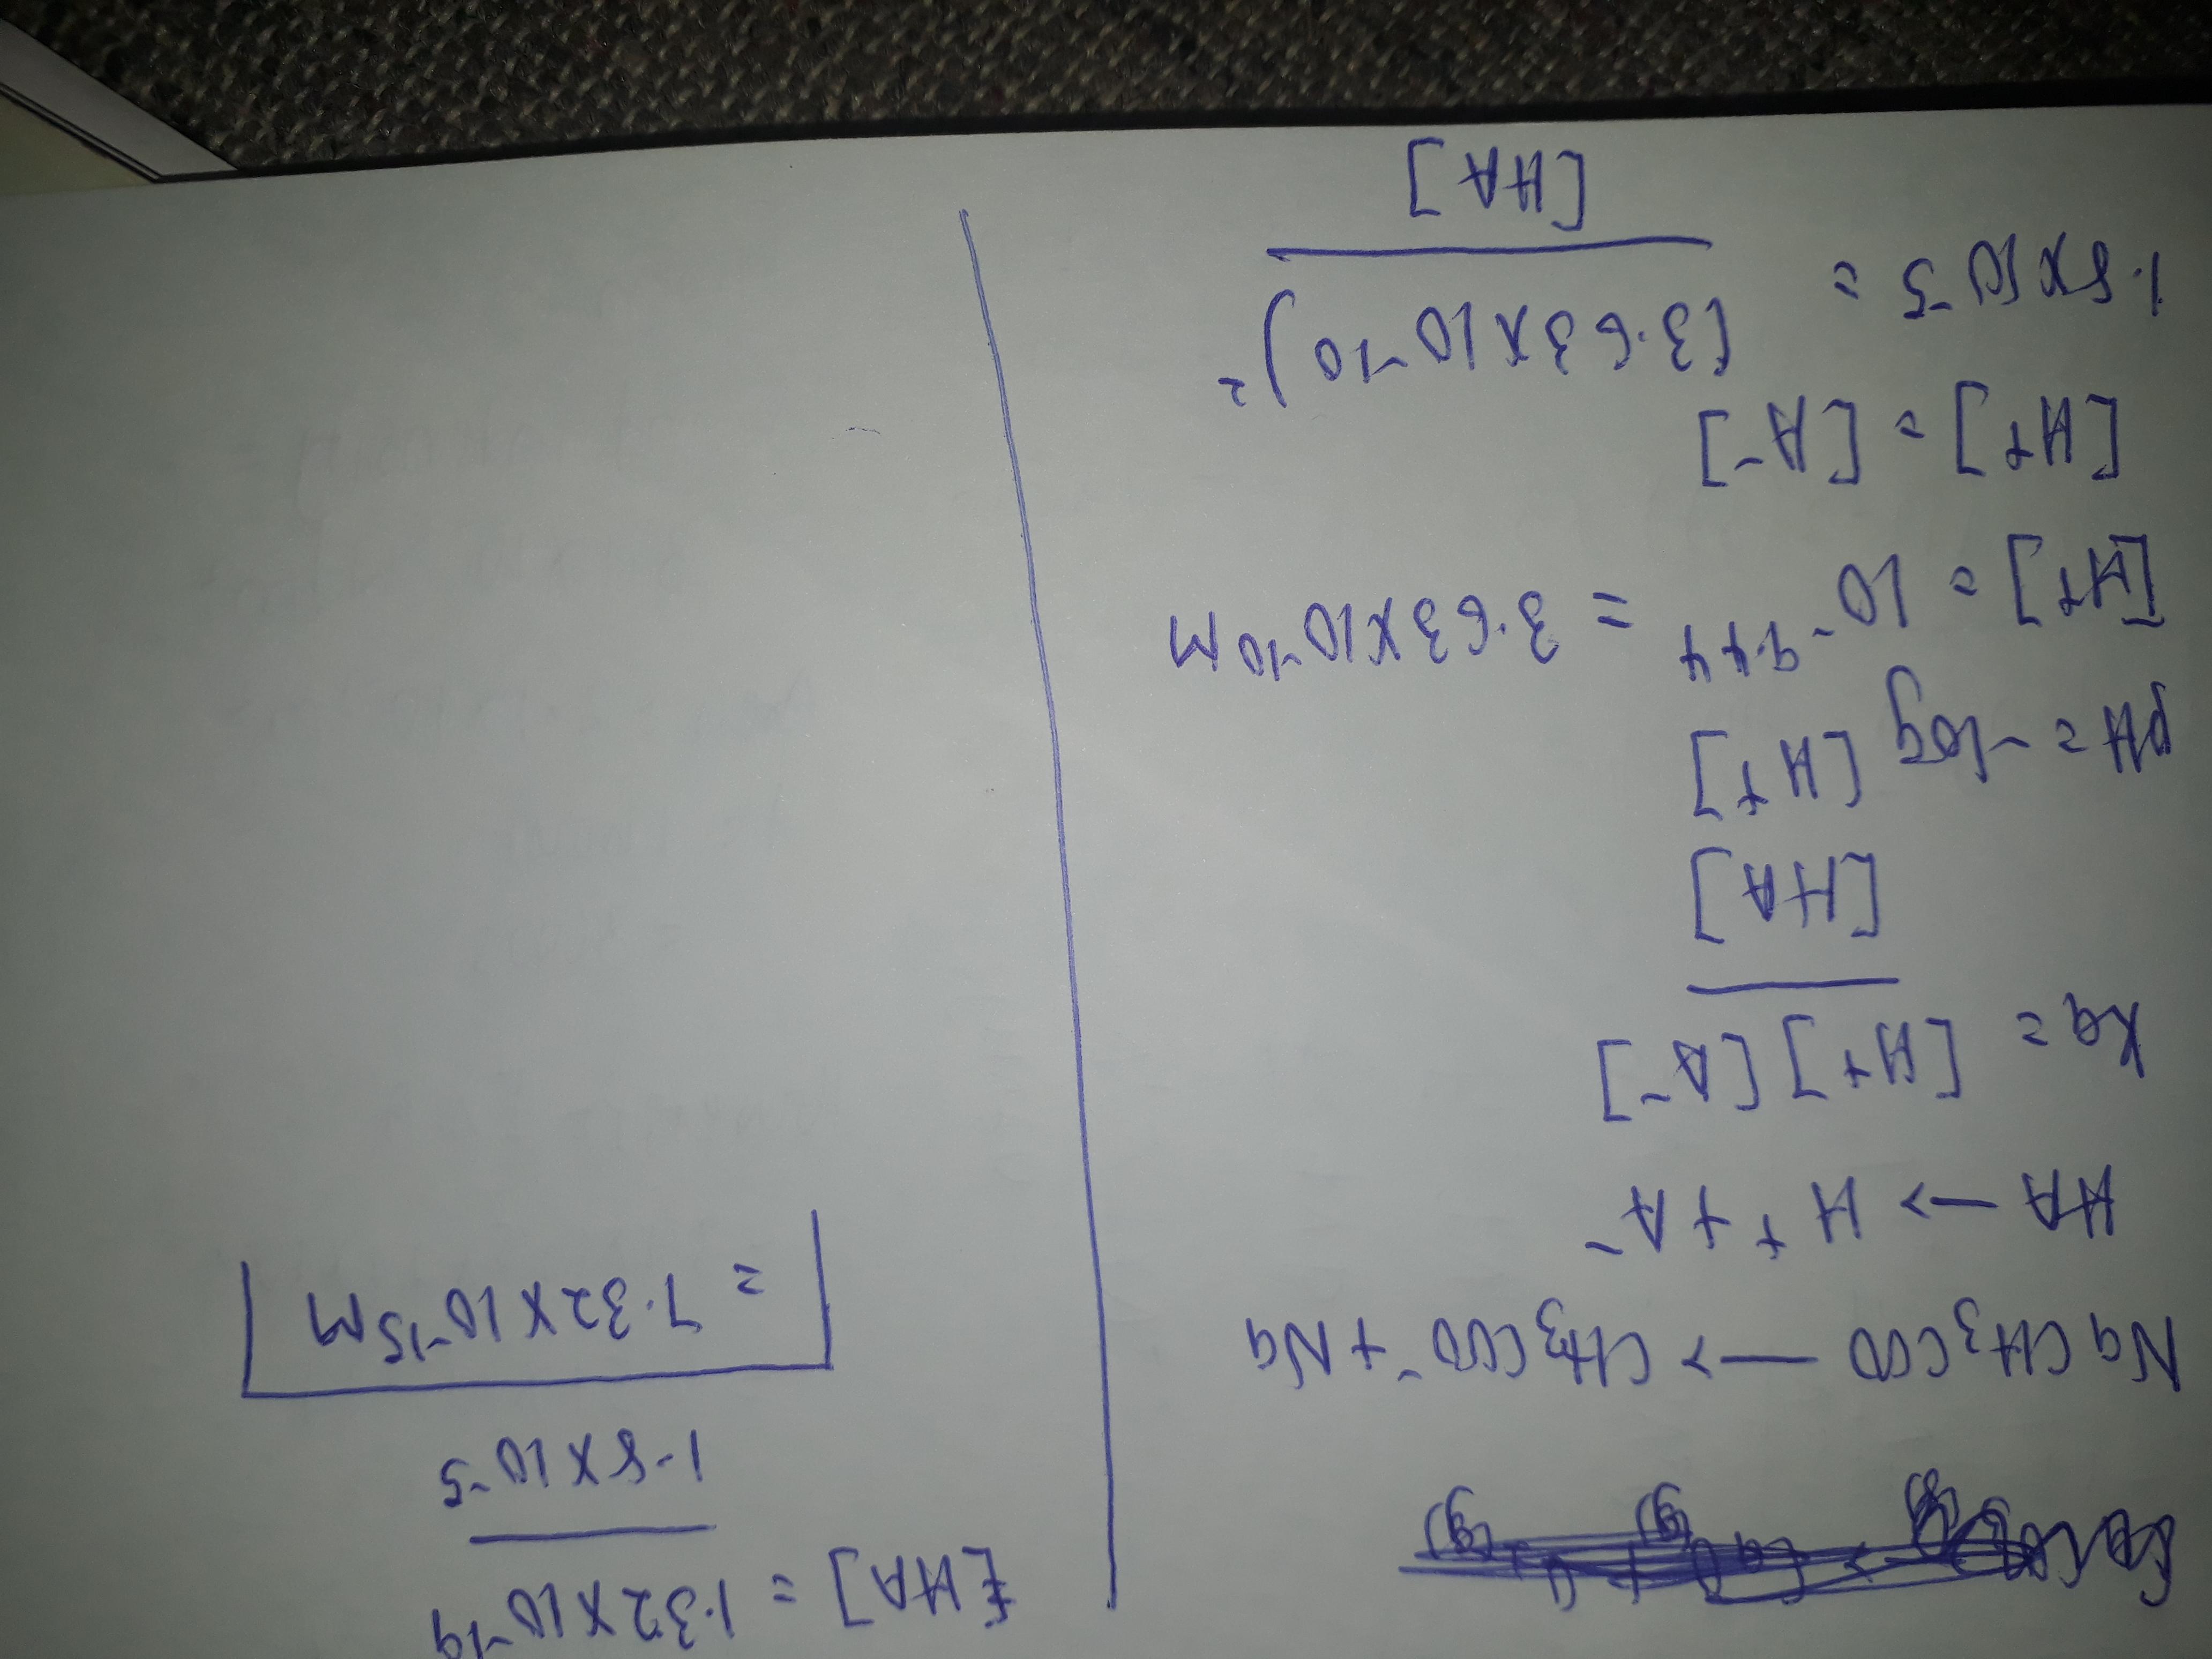 NaCH3COO —> CH3COO⁻ + Na
HA —> H⁺ + A⁻
Ka = [H+] [A⁻]
[HA]
pH = -log [H+]
[H+] = 10⁻⁹·⁴⁴ = 3.63 X 10⁻¹⁰ M
[H+] = [A⁻]
1.8 X 10⁻⁵ = (3.63 X 10⁻¹⁰)²
[HA]
[HA] = 1.32 X 10⁻¹⁹
1.8 X 10⁻⁵
= 7.32 X 10⁻¹⁵ M